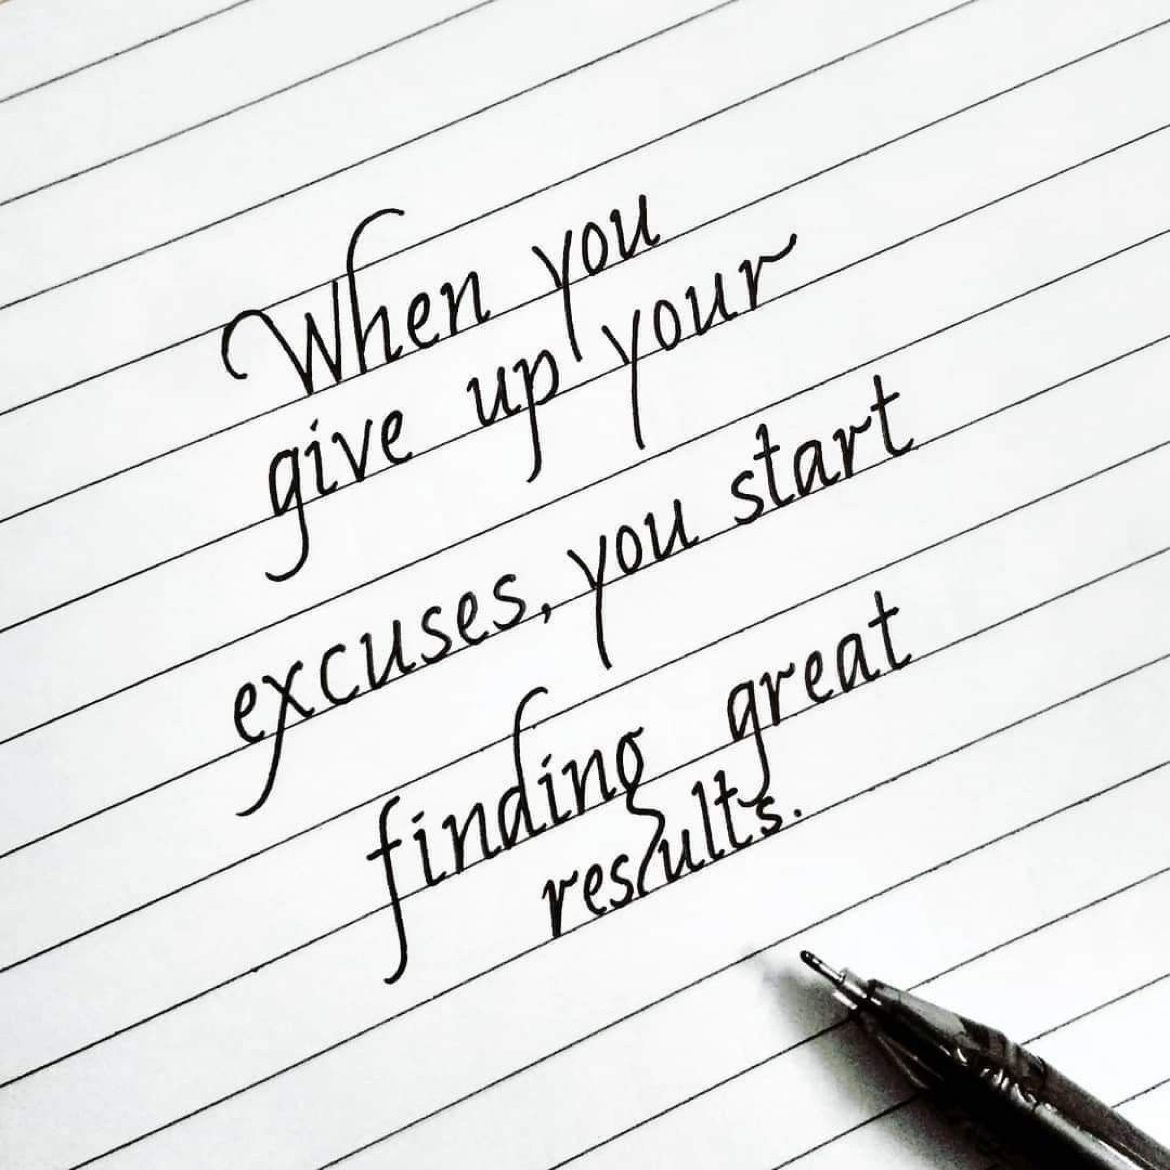 When you
give up your
excuses, you start
finding great
results.